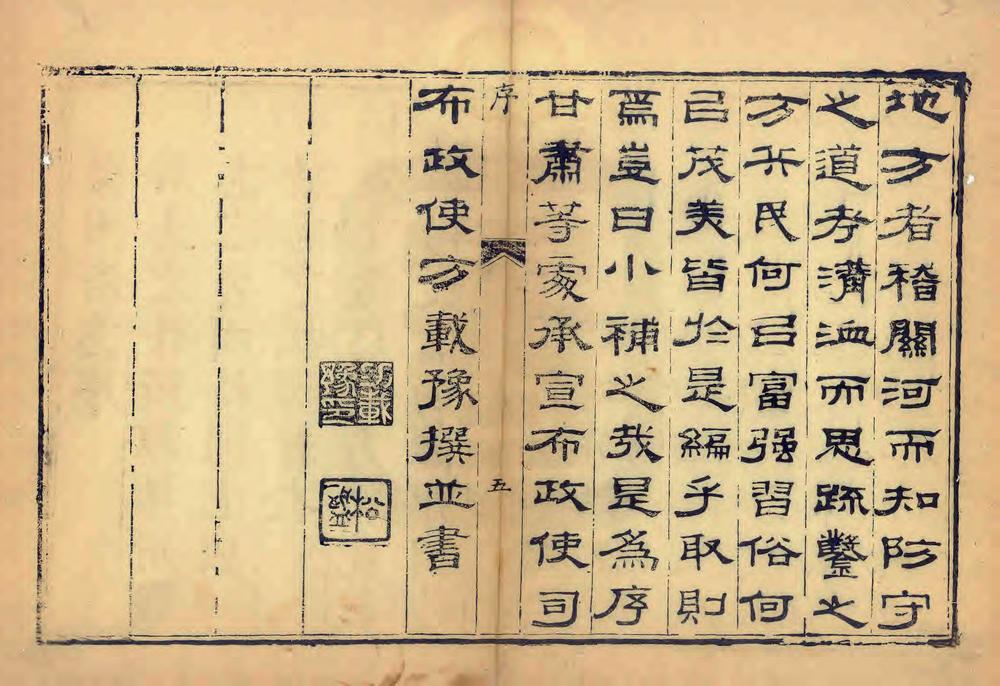 地方者稽關河而知防守
之道考溝洫而思疏鑿之
方兵民何㠯富强習俗何
㠯茂美皆於是編乎取則
焉豈曰小補之哉是為序
甘肅等處承宣布政使司
序 五
布政使方載豫撰並書
方載豫印